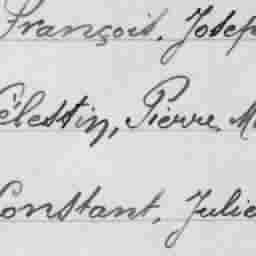 François, Josep
élestin, Pierre, M
Constant, Julie